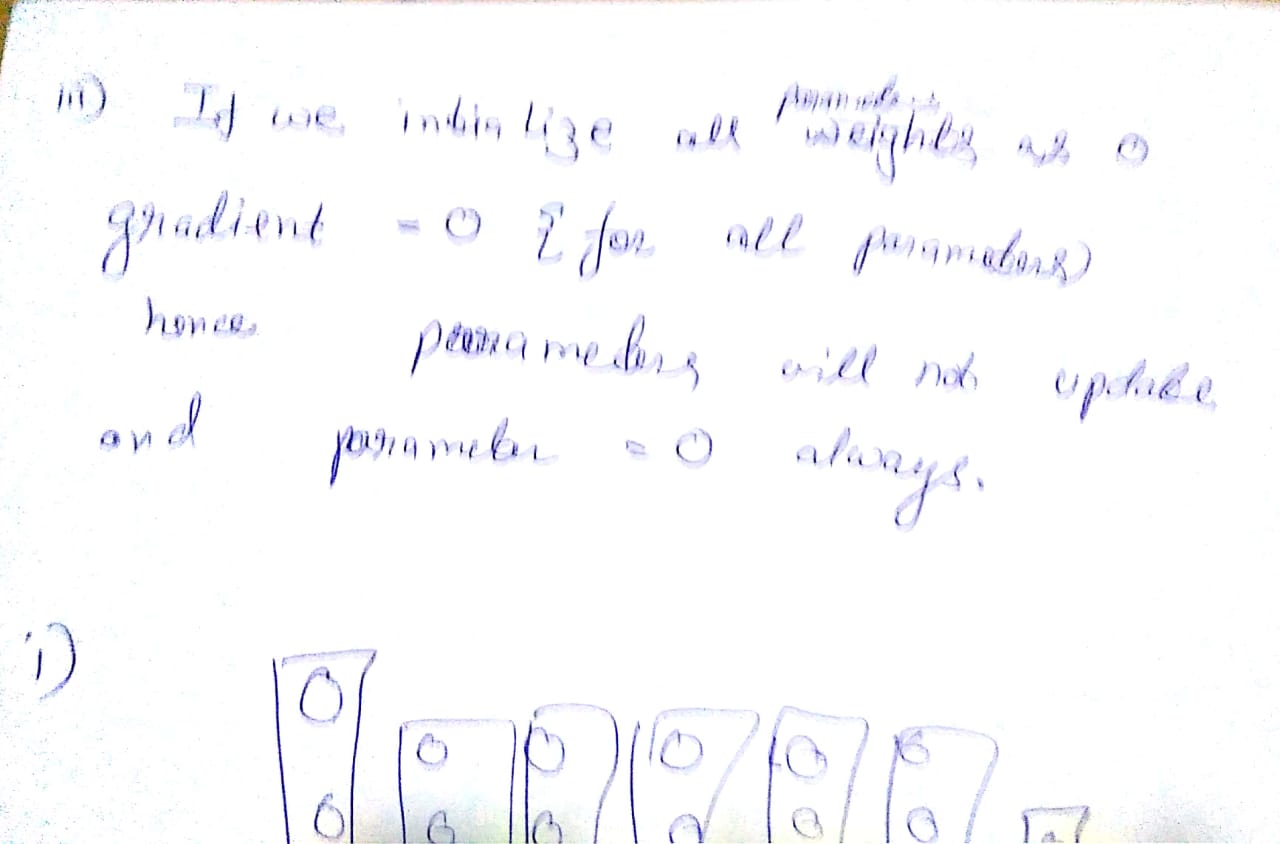 iii) If we initialize all parameters weights as 0
gradient = 0 { for all parameters)
hence parameters will not update
and parameter = 0 always.
i)